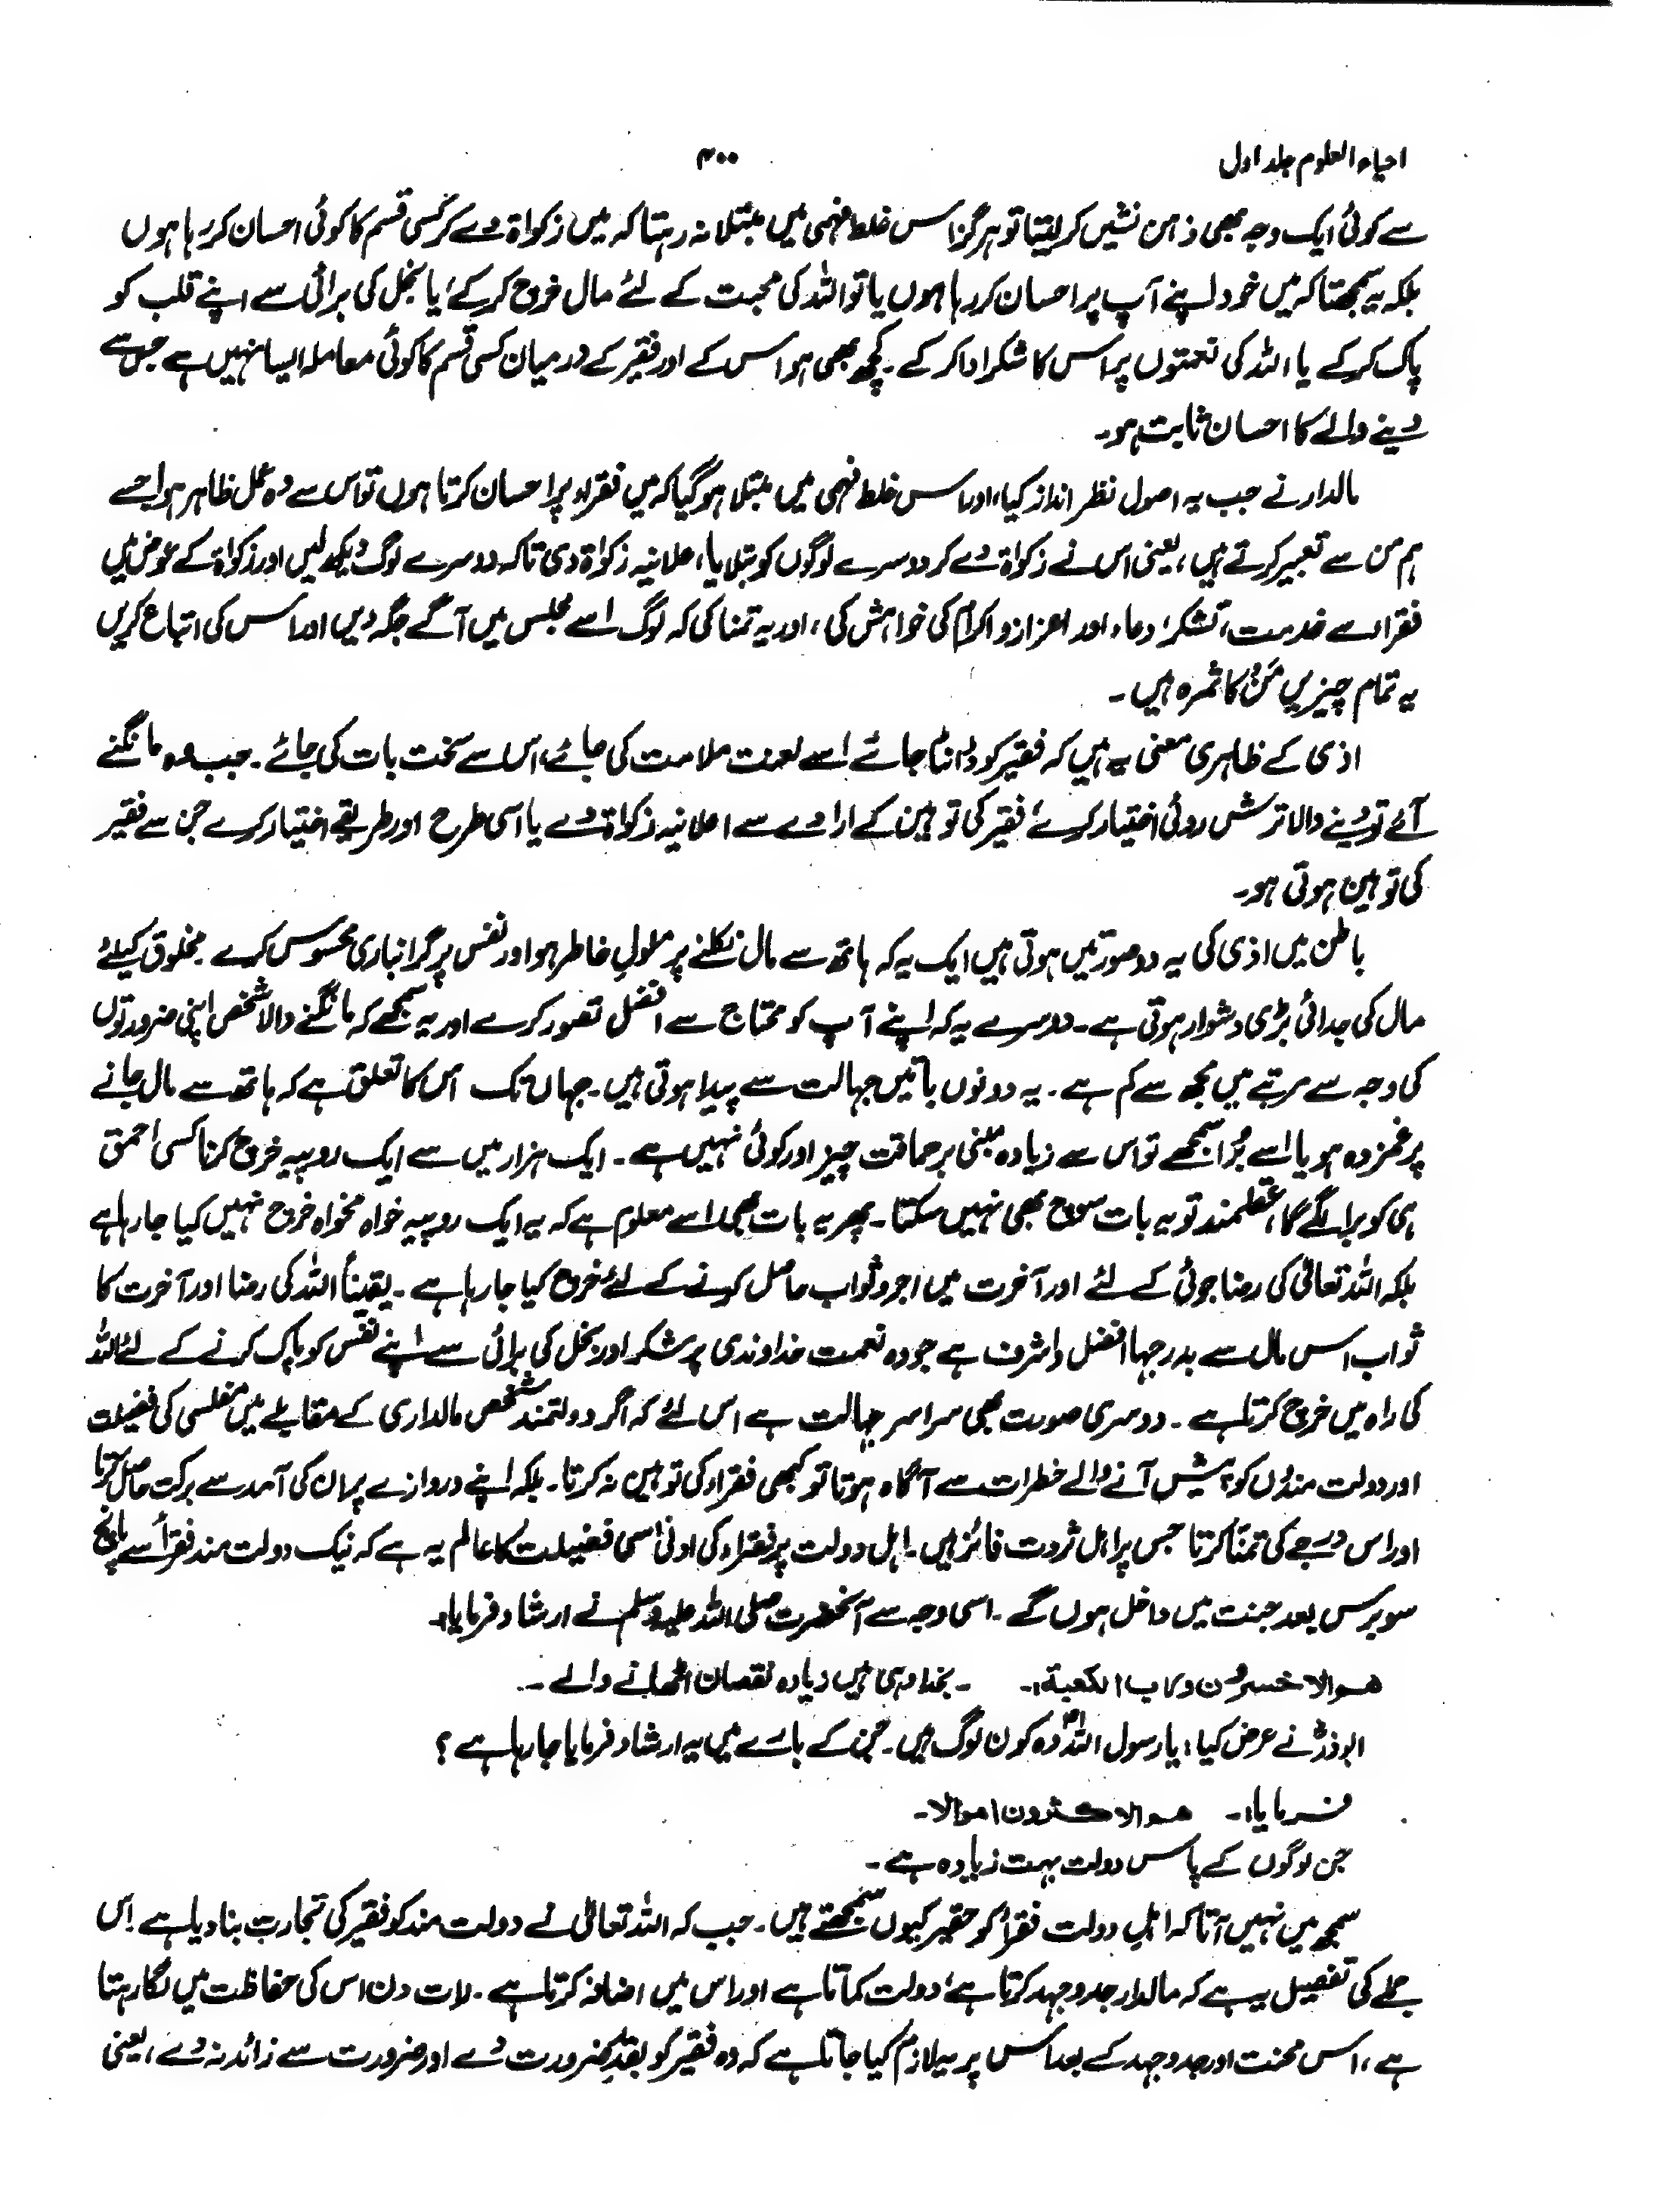 احیاء العلوم جلد اول
۴۰۰
سے کوئی ایک وجہ بھی ذہن نشیں کر لیتا تو ہرگز اس غلط فہمی میں مبتلا نہ رہتا کہ میں زکواۃ دے کر کسی قسم کا کوئی احسان کر رہا ہوں
بلکہ یہ سمجھتا کہ میں خود اپنے آپ پر احسان کر رہا ہوں یا تو اللہ کی محبت کے لئے مال خرچ کر کے، یا بخل کی برائی سے اپنے قلب کو
پاک کر کے یا اللہ کی نعمتوں پر اس کا شکر ادا کر کے۔ کچھ بھی ہو اس کے اور فقیر کے درمیان کسی قسم کا کوئی معاملہ ایسا نہیں ہے جس سے
دینے والے کا احسان ثابت ہو۔
مالدار نے جب یہ اصول نظر انداز کیا، اور اس غلط فہمی میں مبتلا ہو گیا کہ میں فقراء پر احسان کرتا ہوں تو اس سے وہ عمل ظاہر ہوا جسے
ہم من سے تعبیر کرتے ہیں، یعنی اس نے زکواۃ دے کر دوسرے لوگوں کو بتلایا، علانیہ زکواۃ دی تاکہ دوسرے لوگ دیکھ لیں اور زکواۃ کے عوض میں
فقراء سے خدمت، تشکر، دعاء اور اعزاز و اکرام کی خواہش کی، اور یہ تمنا کی کہ لوگ اسے مجلس میں آگے جگہ دیں اور اس کی اتباع کریں
یہ تمام چیزیں مَنّ کا ثمرہ ہیں۔
اذی کے ظاہری معنی یہ ہیں کہ فقیر کو ڈانٹا جائے اسے لعنت ملامت کی جائے، اس سے سخت بات کی جائے۔ جب وہ مانگنے
آئے تو دینے والا ترش روئی اختیار کرے، فقیر کی توہین کے ارادے سے اعلانیہ زکواۃ دے یا اسی طرح اور طریقے اختیار کرے جن سے فقیر
کی توہین ہوتی ہو۔
باطن میں اذی کی یہ دو صورتیں ہوتی ہیں ایک یہ کہ ہاتھ سے مال نکلنے پر ملولِ خاطر ہو اور نفس پر گرانباری محسوس کرے۔ مخلوق کیلئے
مال کی جدائی بڑی دشوار ہوتی ہے۔ دوسرے یہ کہ اپنے آپ کو محتاج سے افضل تصور کرے اور یہ سمجھے کہ مانگنے والا شخص اپنی ضرورتوں
کی وجہ سے مرتبے میں مجھ سے کم ہے۔ یہ دونوں باتیں جہالت سے پیدا ہوتی ہیں۔ جہاں تک اس کا تعلق ہے کہ ہاتھ سے مال جانے
پر غمزدہ ہو یا اسے بُرا سمجھے تو اس سے زیادہ مبنی بر حماقت چیز اور کوئی نہیں ہے۔ ایک ہزار میں سے ایک روپیہ خرچ کرنا کسی احمق
ہی کو برا لگے گا، عقلمند تو یہ بات سوچ بھی نہیں سکتا۔ پھر یہ بات بھی اسے معلوم ہے کہ یہ ایک روپیہ خواہ مخواہ خرچ نہیں کیا جا رہا ہے
بلکہ اللہ تعالیٰ کی رضا جوئی کے لئے اور آخرت میں اجر و ثواب حاصل کرنے کے لئے خرچ کیا جا رہا ہے۔ یقیناً اللہ کی رضا اور آخرت کا
ثواب اس مال سے بدرجہا افضل و اشرف ہے جو وہ نعمت خداوندی پر شکر اور بخل کی برائی سے اپنے نفس کو پاک کرنے کے لئے اللہ
کی راہ میں خرچ کرتا ہے۔ دوسری صورت بھی سراسر جہالت ہے اس لئے کہ اگر دولتمند شخص مالداری کے مقابلے میں مفلسی کی فضیلت
اور دولت مندوں کو پیش آنے والے خطرات سے آگاہ ہوتا تو کبھی فقراء کی توہین نہ کرتا۔ بلکہ اپنے دروازے پر ان کی آمد سے برکت حاصل کرتا
اور اس درجے کی تمنّا کرتا جس پر اہل ثروت فائز ہیں۔ اہل دولت پر فقراء کی ادنیٰ سی فضیلت کا عالم یہ ہے کہ نیک دولت مند فقراء سے پانچ
سو برس بعد جنت میں داخل ہوں گے۔ اسی وجہ سے آنحضرت صلی اللہ علیہ وسلم نے ارشاد فرمایا:۔
ھو الاخسرون ورب الکعبۃ:۔ ۔ بخدا وہی ہیں زیادہ نقصان اٹھانے والے ۔۔
ابوذرؓ نے عرض کیا: یا رسول اللہؐ وہ کون لوگ ہیں۔ جن کے بارے میں یہ ارشاد فرمایا جا رہا ہے؟
فرمایا:۔ ھو الاکثرون اموالا۔
جن لوگوں کے پاس دولت بہت زیادہ ہے۔
سمجھ میں نہیں آتا کہ اہلِ دولت فقراء کو حقیر کیوں سمجھتے ہیں۔ جب کہ اللہ تعالیٰ نے دولت مند کو فقیر کی تجارت بنا دیا ہے اس
جملے کی تفصیل یہ ہے کہ مالدار جدوجہد کرتا ہے، دولت کماتا ہے اور اس میں اضافہ کرتا ہے۔ رات دن اس کی حفاظت میں لگا رہتا
ہے، اس محنت اور جدوجہد کے بعد اس پر یہ لازم کیا جاتا ہے کہ وہ فقیر کو بقدرِ ضرورت دے اور ضرورت سے زائد نہ دے، یعنی